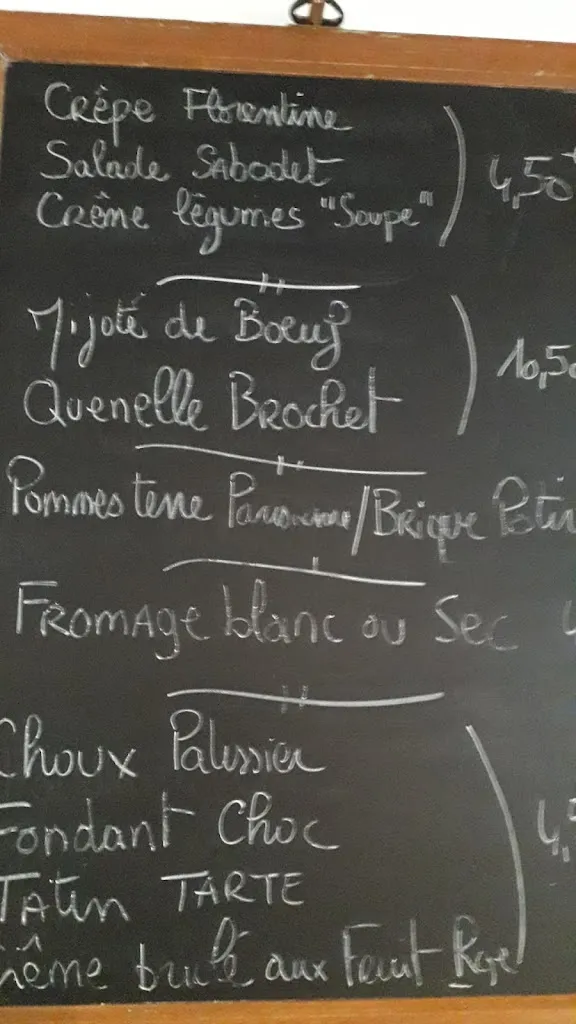 Crêpe Florentine
Salade Sabodet 4,50
Crême légumes "Soupe"
Mijoté de Boeuf
10,50
Quenelle Brochet
Pommes terre /Brique Potir
FROMAGE blanc ou Sec
Choux Patissier
Fondant Choc 4,5
TATin TARTE
rême brulé aux Fruit Rge